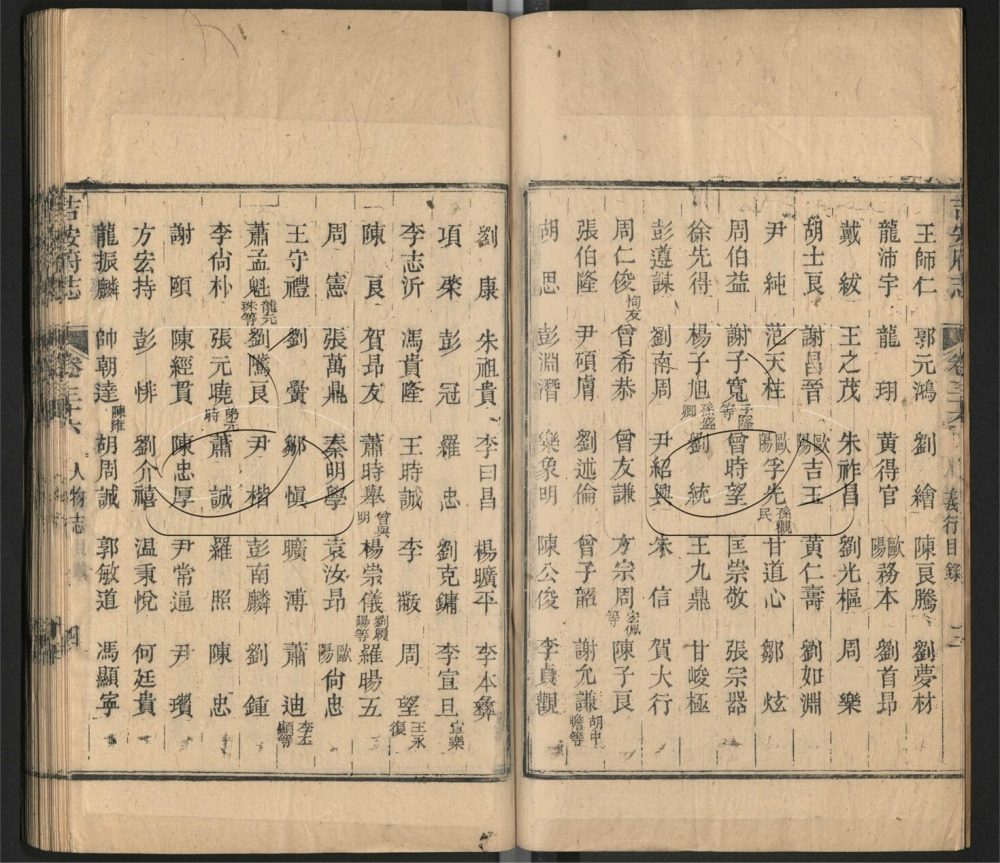 王師仁 郭元鴻 劉繪 陳良騰 劉夢材
龍沛宇 龍珝 黃得官 歐陽務本 劉首昂
戴紱 王之茂 朱祚昌 劉光樞 周樂
胡士良 謝昌晉 歐陽吉玉 黃仁壽 劉如淵
尹純 范天柱 歐陽孚先 孫觀民 甘道心 鄒炫
周伯益 謝子寬 子隆等 曾時望 匡崇敬 張宗器
徐先得 楊子旭 孫盛卿 劉統 王九鼎 甘峻極
彭遵諫 劉南周 尹紹興 宋信 賀大行
周仁俊 恂友 曾希恭 曾友謙 方宗周 宏佩等 陳子良
張伯隆 尹碩膚 劉述倫 曾子韶 謝允謙 胡中瞻等
胡思 彭淵潛 欒象明 陳公俊 李貞觀
吉安府志 卷三六 義行目錄 三
劉康 朱祖貴 李曰昌 楊曠平 李本彝
項榮 彭冠 羅忠 劉克鏞 李宣旦 宣樂
李志沂 馮貴隆 王時誠 李黻 周望 王永復
陳良 賀昂友 蕭時舉 曾與明 楊崇儀 劉履陽等 羅暘五
周憲 張萬鼎 秦明學 袁汝昂 歐陽尙忠
王守禮 劉黌 鄒愼 曠溥 蕭迪 李玉顯等
蕭孟魁 龍元珠等 劉騰良 尹楷 彭南麟 劉鍾
李尙朴 張元曉 弟元時 蕭誠 羅照 陳忠
謝頤 陳經貫 陳忠厚 尹常通 尹瓚
方宏持 彭悱 劉介禧 温秉悅 何廷貴
龍振麟 帥朝達 陳雍 胡周誠 郭敏道 馮顯寧
吉安府志 卷三十六 人物志 四